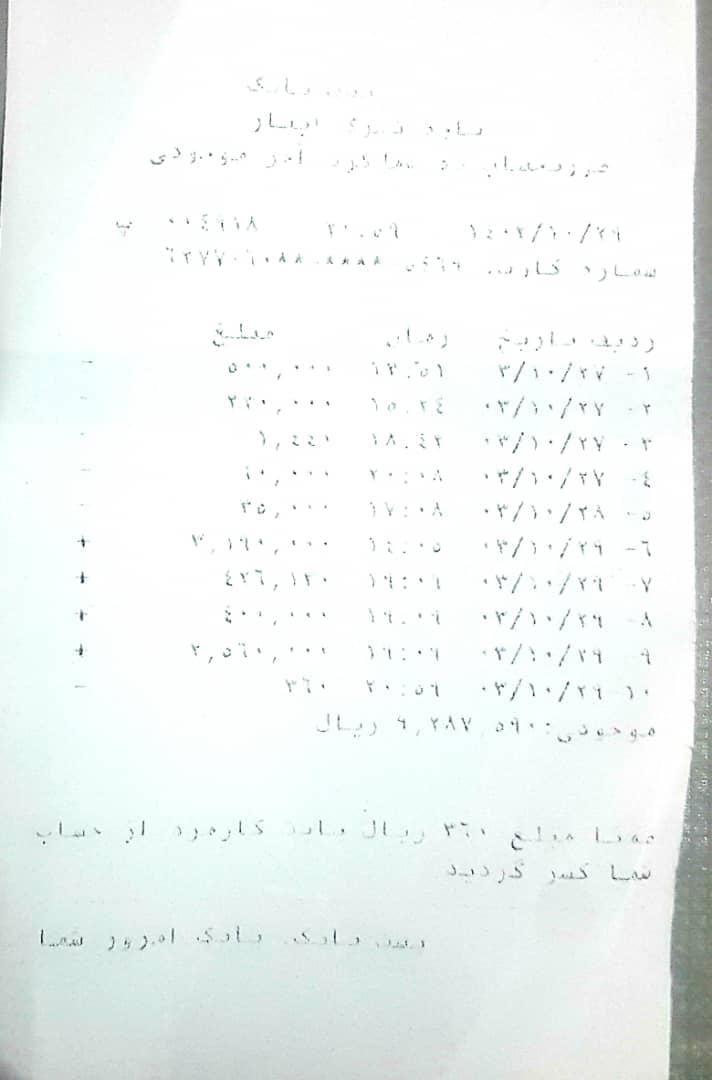 پست بانک
صورتحساب ده عملکرد آخر موجودی
۱۴۰۳/۱۰/۲۹ ۲۰:۵۹ ۰۰۴۹۱۸
شماره کارت
ردیف تاریخ زمان مبلغ
۱- ۰۳/۱۰/۲۷ ۱۳:۵۱ ۵۰۰,۰۰۰ -
۲- ۰۳/۱۰/۲۷ ۱۵:۲۴ ۲۲۰,۰۰۰ -
۳- ۰۳/۱۰/۲۷ ۱۸:۴۲ ۱,۴۴۰ -
۴- ۰۳/۱۰/۲۷ ۲۰:۰۸ ۱۰,۰۰۰ -
۵- ۰۳/۱۰/۲۸ ۱۷:۰۸ ۳۵,۰۰۰ -
۶- ۰۳/۱۰/۲۹ ۱۴:۰۵ ۳,۱۹۰,۰۰۰ +
۷- ۰۳/۱۰/۲۹ ۱۹:۰۹ ۴۲۶,۱۲۰ +
۸- ۰۳/۱۰/۲۹ ۱۹:۰۹ ۴۰۰,۰۰۰ +
۹- ۰۳/۱۰/۲۹ ۱۹:۰۹ ۲,۵۶۰,۰۰۰ +
۱۰- ۰۳/۱۰/۲۹ ۲۰:۵۹ ۳۶۰ -
موجودی: ۹,۲۸۷,۵۹۰ ریال
ضمنا مبلغ ۳۶۰ ریال بابت کارمزد از حساب
شما کسر گردید
پست بانک، بانک امروز شما